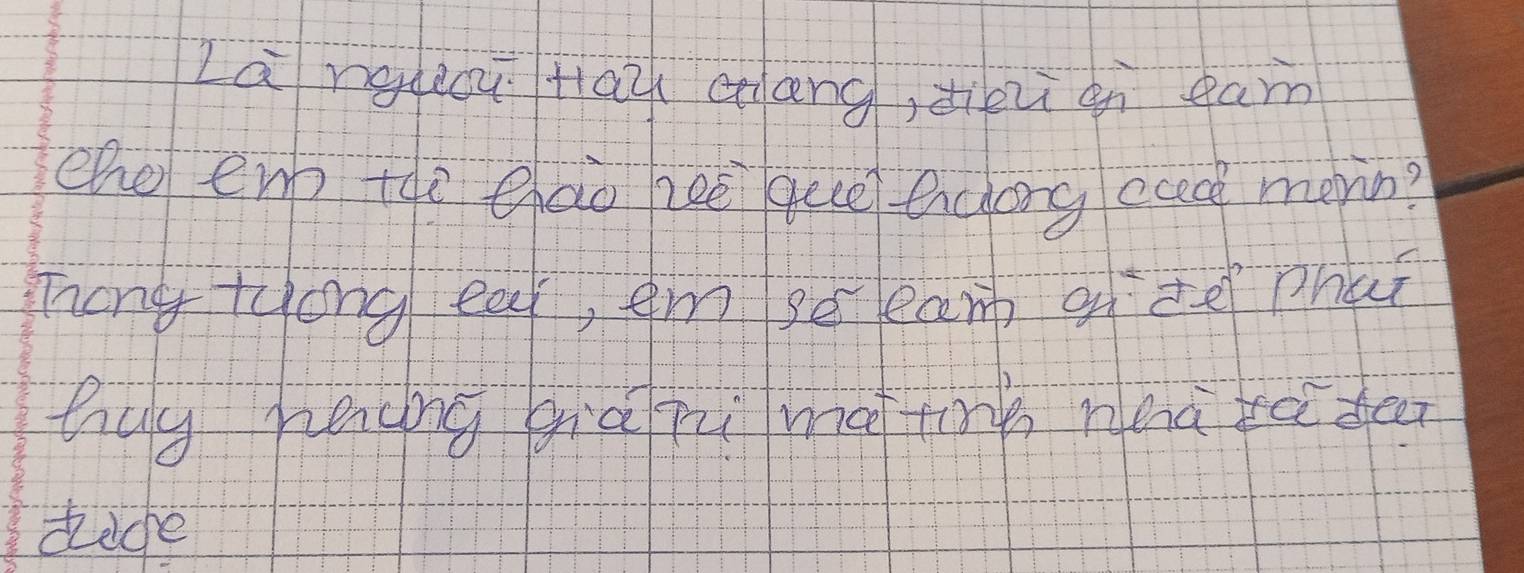 Là người Hải Dương, điều gì làm
cho em tự hào về quê hương của mình?
Trong tương lai, em sẽ làm gì để phát
huy những giá trị mà tỉnh nhà đã đạt
được